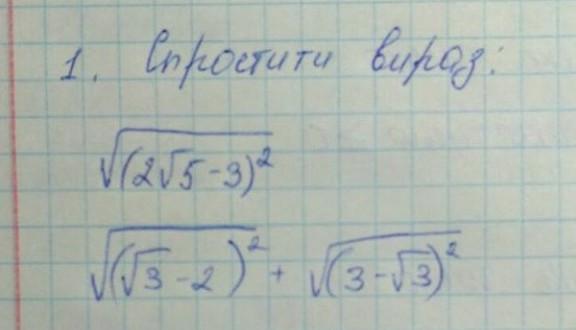 1. Спростити вираз:
√((2√5-3)²)
√((√3-2)²) + √((3-√3)²)